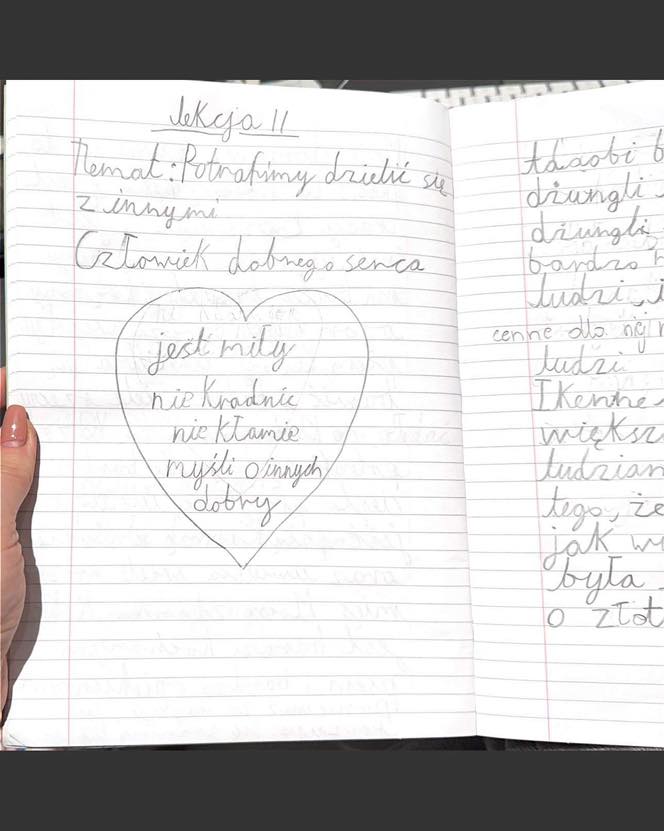 lekcja 11
Temat: Potrafimy dzielić się
z innymi
Człowiek dobrego serca
jest miły
nie kradnie
nie kłamie
myśli o innych
dobry
dżungli
dżungli
bardzo
ludzi, i
cenne dla niej
ludzi
Ikenne
większ
ludziam
tego, że
jak wi
była
o złot